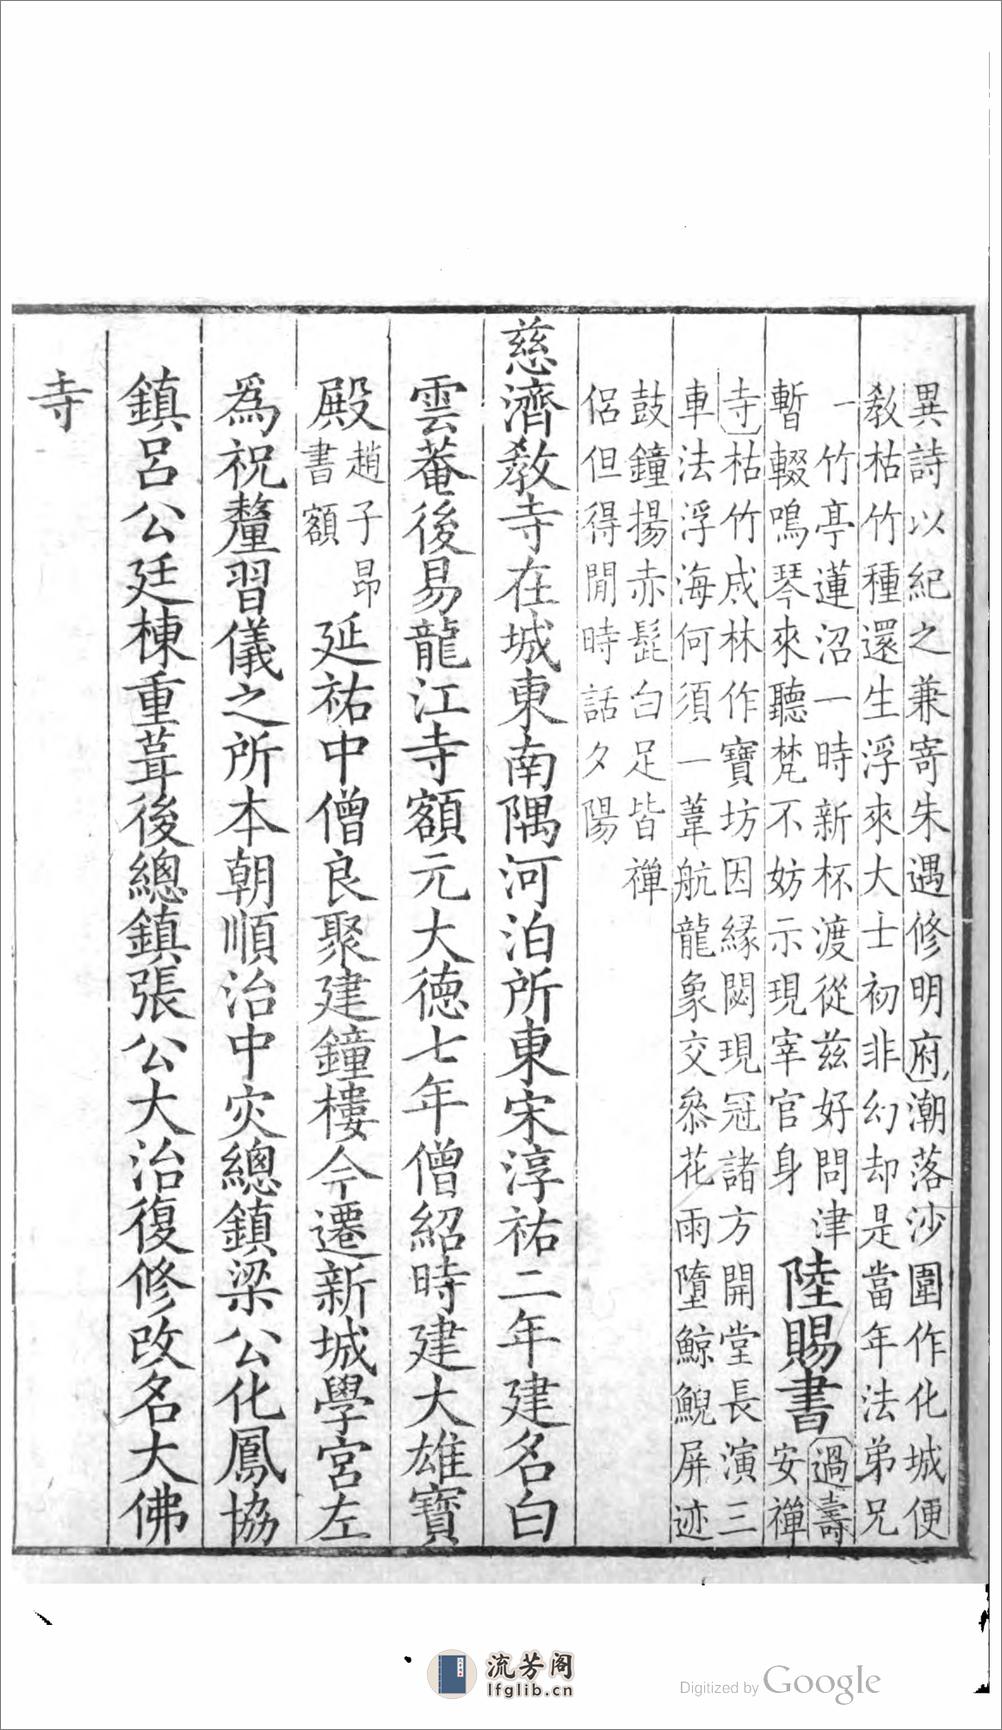 異詩以紀之兼寄朱遇修明府潮落沙圍作化城便
教枯竹種還生浮來大士初非幻却是當年法弟兄
一竹亭蓮沼一時新杯渡從茲好問津
暫輟鳴琴來聽梵不妨示現宰官身
陸賜書
過壽
安禪
寺枯竹成林作寶坊因緣閟現冠諸方開堂長演三
車法浮海何須一葦航龍象交叅花雨墮鯨鯢屏迹
鼓鐘揚赤髭白足皆禪
侶但得閒時話夕陽
慈濟教寺在城東南隅河泊所東宋淳祐二年建名白
雲菴後易龍江寺額元大德七年僧紹時建大雄寶
殿
趙子昻
書額
延祐中僧良聚建鐘樓今遷新城學宮左
爲祝釐習儀之所本朝順治中灾總鎮梁公化鳳協
鎮呂公廷棟重葺後總鎮張公大治復修改名大佛
寺
流芳阁
lfglib.cn
Digitized by Google